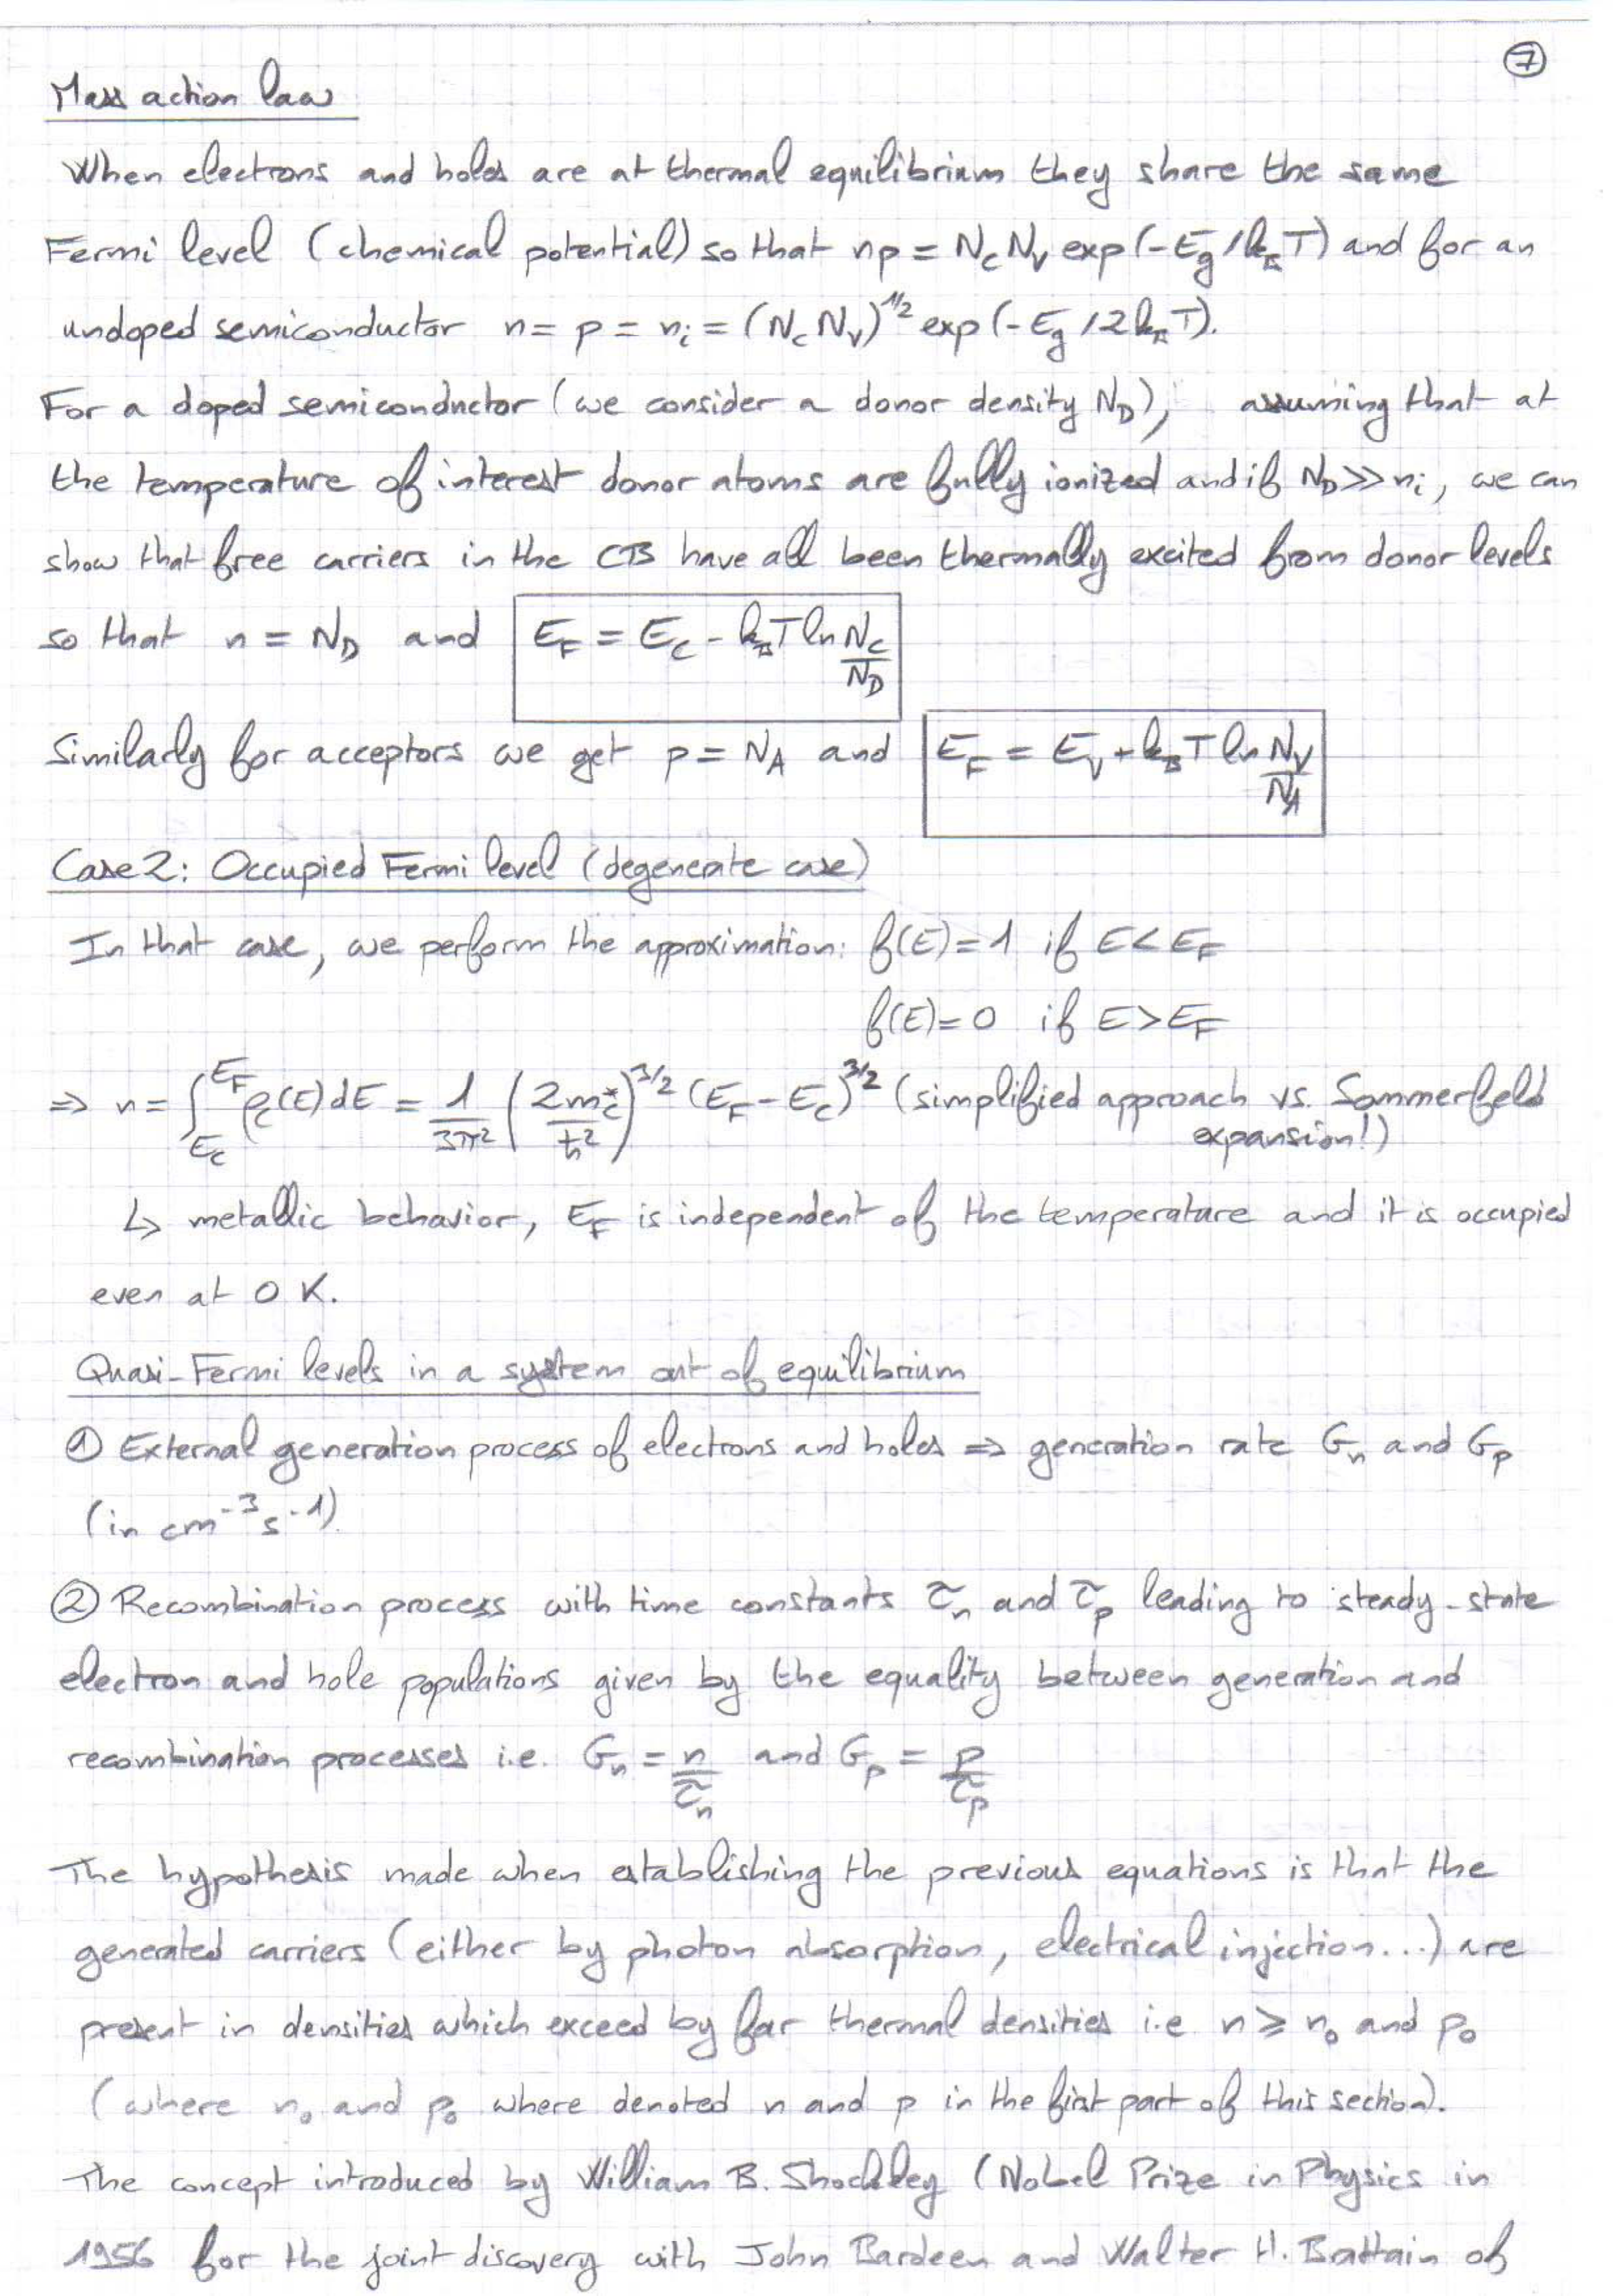 7
Mass action law
When electrons and holes are at thermal equilibrium they share the same
Fermi level (chemical potential) so that np = N_c N_v exp(-E_g/k_B T) and for an
undoped semiconductor n = p = n_i = (N_c N_v)^1/2 exp(-E_g/2k_B T).
For a doped semiconductor (we consider a donor density N_D), assuming that at
the temperature of interest donor atoms are fully ionized and if N_D >> n_i, we can
show that free carriers in the CB have all been thermally excited from donor levels
so that n = N_D and E_F = E_C - k_B T ln N_c/N_D
Similarly for acceptors we get p = N_A and E_F = E_V + k_B T ln N_V/N_A
Case 2: Occupied Fermi level (degenerate case)
In that case, we perform the approximation: f(E) = 1 if E < E_F
f(E) = 0 if E > E_F
⇒ n = ∫_{E_c}^{E_F} ρ_c(E)dE = 1/3π² (2m_c*/ħ²)^3/2 (E_F - E_C)^3/2 (simplified approach vs. Sommerfeld
expansion!)
↳ metallic behavior, E_F is independent of the temperature and it is occupied
even at 0 K.
Quasi-Fermi levels in a system out of equilibrium
① External generation process of electrons and holes ⇒ generation rate G_n and G_p
(in cm^-3 s^-1).
② Recombination process with time constants τ_n and τ_p leading to steady-state
electron and hole populations given by the equality between generation and
recombination processes i.e. G_n = n/τ_n and G_p = p/τ_p
The hypothesis made when establishing the previous equations is that the
generated carriers (either by photon absorption, electrical injection...) are
present in densities which exceed by far thermal densities i.e n ⩾ n_0 and p_0
(where n_0 and p_0 where denoted n and p in the first part of this section).
The concept introduced by William B. Shockley (Nobel Prize in Physics in
1956 for the joint discovery with John Bardeen and Walter H. Brattain of